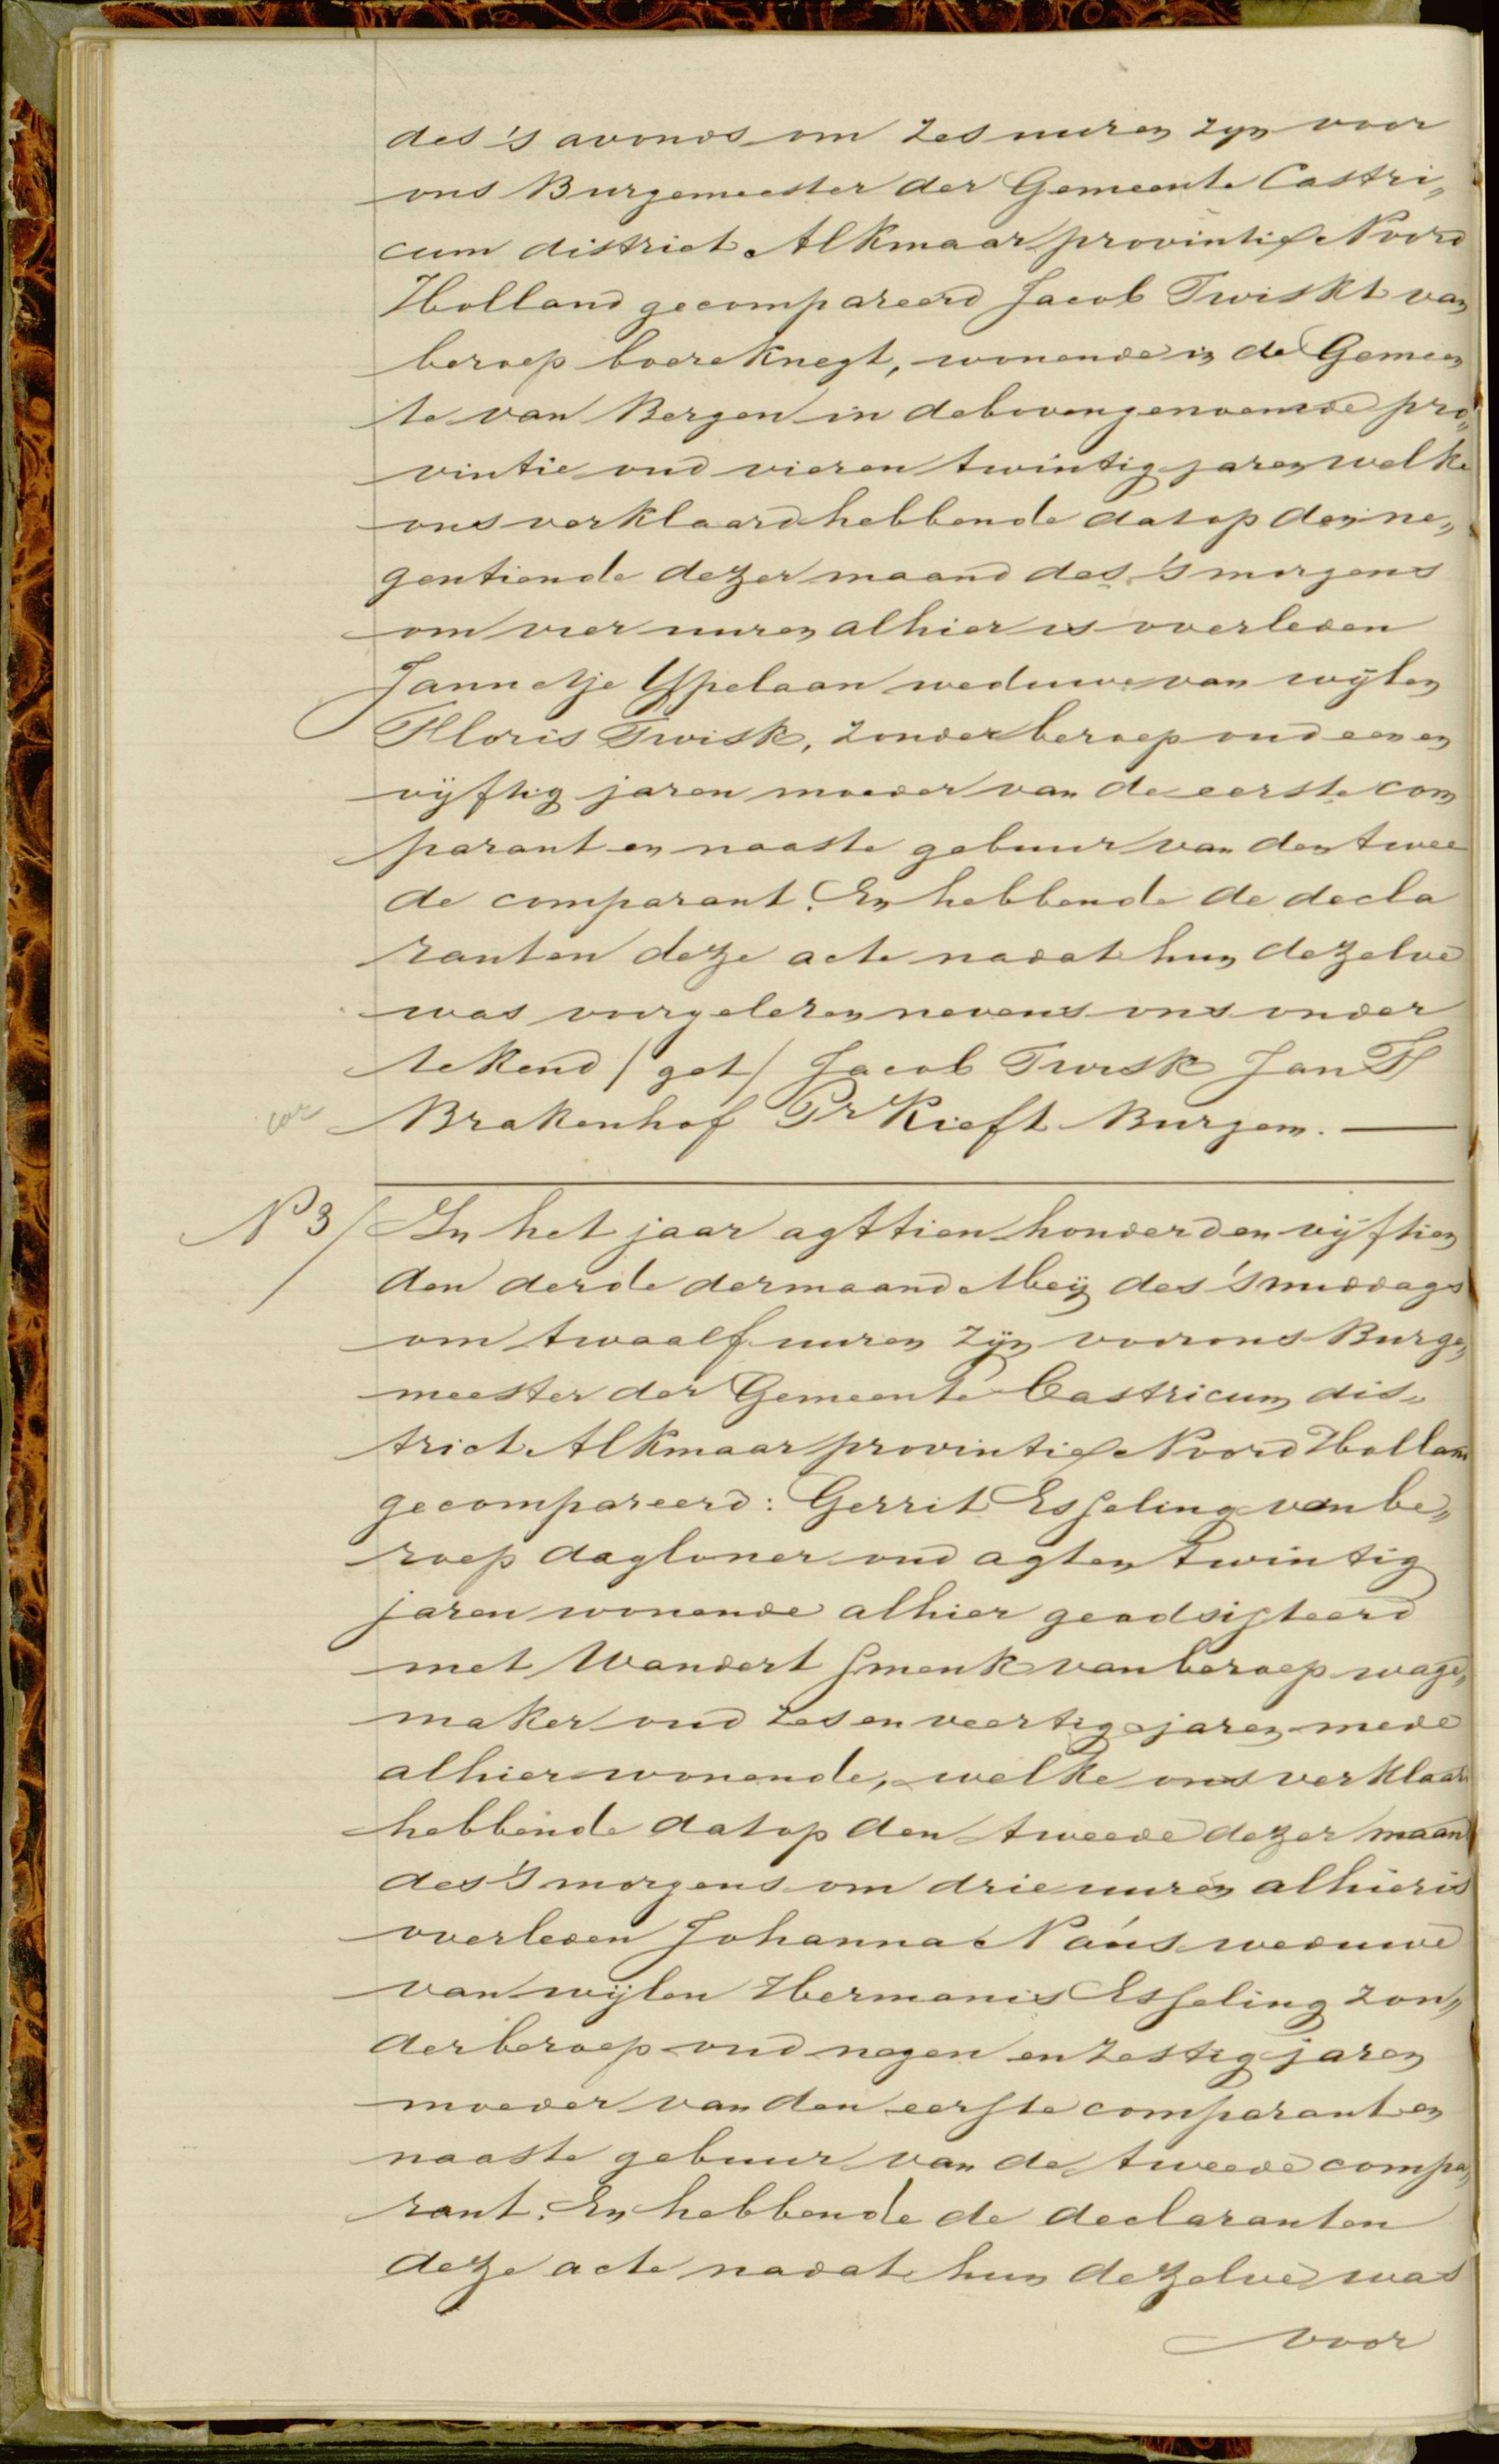 des 's avonds om zes uuren zyn voor
ons Burgemeester der Gemeente Castri„
cum district Alkmaar provintie Noord
Holland gecompareerd Jacob Twiskt van
beroep boereknegt, wonende in de Gemeen
te van Bergen in de bovengenoemde pro„
vintie oud vier en twintig jaren welke
ons verklaard hebbende dat op den ne„
gentiende dezer maand des 's morgens
om vier uuren alhier is overleden
Jannetje Ypelaan weduwe van wijlen
Floris Twisk, zonder beroep oud een en
vijftig jaren moeder van de eerste com
parant en naaste gebuur van den twee
de comparant. En hebbende de decla
ranten deze acte nadat hun dezelve
was voorgelezen nevens ons onder
tekend / get / Jacob Twisk Jan F
Brakenhof Pr Kieft Burgem.
N 3 / In het jaar agttien honderd en vijftien
den derde der maand Meij des 's middags
om twaalf uuren zijn voor ons Burge„
meester der Gemeente Castricum dis„
trict Alkmaar provintie Noord Holland
gecompareerd: Gerrit Esseling van be„
roep dagloner oud agt en twintig
jaren wonende alhier geadsisteerd
met Wandert Smenk van beroep wage„
maker oud zes en veertig jaren mede
alhier wonende, welke ons verklaard
hebbende dat op den tweede dezer maand
des 's morgens om drie uuren alhier is
overleden Johanna Náns weduwe
van wijlen Hermanis Esseling zon„
der beroep oud negen en zestig jaren
moeder van den eerste comparant en
naaste gebuur van de tweede compa„
rant. En hebbende de declaranten
deze acte nadat hun dezelve was
voor